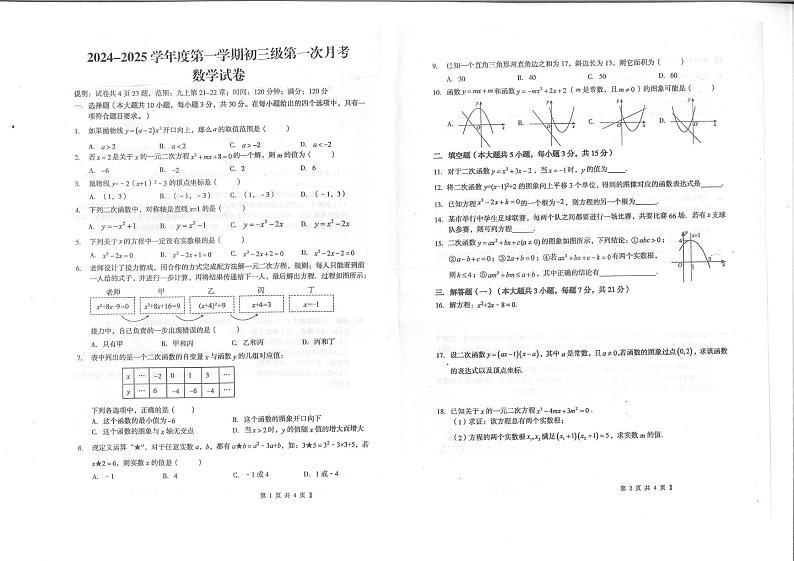 2024-2025 学年度第一学期初三级第一次月考
数学试卷
说明：试卷共 4 页 23 题，范围：九上第 21-22 章；时间：120 分钟；满分：120 分
一. 选择题（本大题共 10 小题，每小题 3 分，共 30 分。在每小题给出的四个选项中，只有一
项符合题目要求。）
1. 如果抛物线 y=(a-2)x² 开口向上，那么 a 的取值范围是（ ）
A. a>2 B. a<2 C. a>-2 D. a<-2
2. 若 x=2 是关于 x 的一元二次方程 x²+mx+8=0 的一个解，则 m 的值为（ ）
A. -6 B. -2 C. 2 D. 6
3. 抛物线 y=-2(x+1)²-3 的顶点坐标是（ ）
A.（1，3） B.（-1，-3） C.（1，-3） D.（-1，3）
4. 下列二次函数中，对称轴是直线 x=1 的是（ ）
A. y=-x²+1 B. y=x²-1 C. y=-x²-2x D. y=x²-2x
5. 下列关于 x 的方程中一定没有实数根的是（ ）
A. x²-2x=0 B. x²-2x+1=0 C. x²-2x+2=0 D. x²-2x-2=0
6. 老师设计了接力游戏，用合作的方式完成配方法解一元二次方程，规则：每人只能看到前
一人给的式子，并进行一步计算，再将结果传递给下一人，最后解出方程. 过程如图所示：
老师 甲 乙 丙 丁
x²+8x-9=0 x²+8x+16=9 (x+4)²=9 x+4=3 x=-1
接力中，自己负责的一步出现错误的是（ ）
A. 只有甲 B. 甲和丙 C. 乙和丙 D. 丙和丁
7. 表中列出的是一个二次函数的自变量 x 与函数 y 的几组对应值：
x … -2 0 1 3 …
y … 6 -4 -6 -4 …
下列各选项中，正确的是（ ）
A. 这个函数的最小值为 -6 B. 这个函数的图象开口向下
C. 这个函数的图象与 x 轴无交点 D. 当 x>2 时，y 的值随 x 值的增大而增大
8. 现定义运算“★”，对于任意实数 a，b，都有 a★b=a²-3a+b，如：3★5=3²-3×3+5，若
x★2=6，则实数 x 的值是（ ）
A. -1 B. 4 C. -1 或 4 D. 1 或 -4
第 1 页 共 4 页 】
9. 已知一个直角三角形两直角边之和为 17，斜边长为 13，则它面积为（ ）
A. 30 B. 40 C. 50 D. 60
10. 函数 y=mx+m 和函数 y=-mx²+2x+2（m 是常数，且 m≠0）的图象可能是（ ）
A. B. C. D.
二. 填空题（本大题共 5 小题，每小题 3 分，共 15 分）
11. 对于二次函数 y=x²+3x-2，当 x=-1 时，y 的值为____.
12. 将二次函数 y=(x-1)²+2 的图象向上平移 3 个单位，得到的图像对应的函数表达式是____.
13. 已知方程 x²-2x+k=0 的一个根为 -2，则方程的另一个根为____.
14. 某市举行中学生足球联赛，每两个队之间都要进行一场比赛，共要比赛 66 场. 若有 x 支球
队参赛，则可列方程____.
15. 二次函数 y=ax²+bx+c(a≠0) 的图象如图所示，下列结论：①abc>0；
②a-b+c=0；③2a+b=0；④若 ax²+bx+c-k=0 有两个实数根，
则 k≤4；⑤am²+bm≤a+b，其中正确的结论有____.
x=1
三. 解答题（一）（本大题共 3 小题，每题 7 分，共 21 分）
16. 解方程：x²+2x-8=0.
17. 设二次函数 y=(ax-1)(x-a)，其中 a 是常数，且 a≠0，若函数的图象过点 (0,2)，求该函数
的表达式以及顶点坐标.
18. 已知关于 x 的一元二次方程 x²-4mx+3m²=0.
（1）求证：该方程总有两个实数根；
（2）方程的两个实数根 x₁,x₂ 满足 (x₁+1)(x₂+1)=5，求实数 m 的值.
第 2 页 共 4 页 】